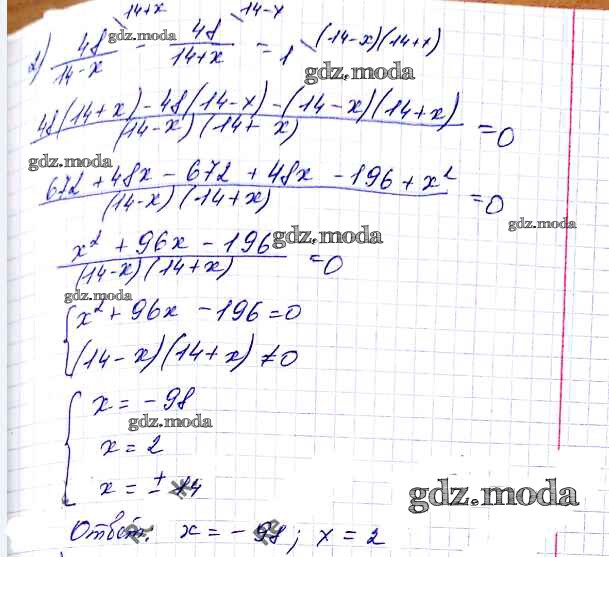 14+x 14-x
2) 48/(14-x) - 48/(14+x) = 1 (14-x)(14+x)
gdz.moda
(48(14+x)-48(14-x)-(14-x)(14+x))/((14-x)(14+x)) = 0
gdz.moda
(672+48x-672+48x-196+x²)/((14-x)(14+x)) = 0
gdz.moda
(x²+96x-196)/((14-x)(14+x)) = 0
gdz.moda
gdz.moda
{ x²+96x-196=0
(14-x)(14+x)≠0
{ x = -98
gdz.moda
x = 2
x = ± 14
gdz.moda
Ответ: x = -98; x = 2